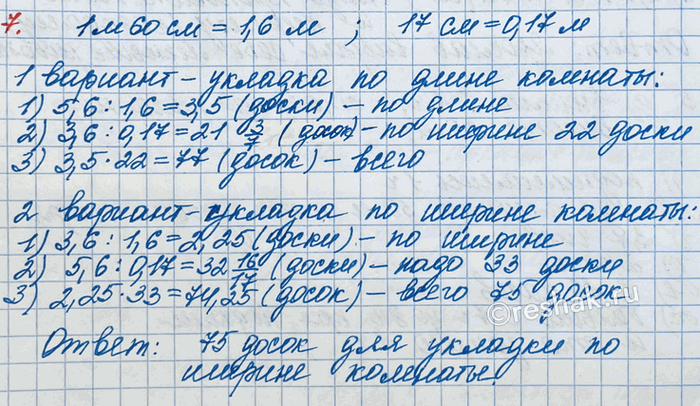 7. 1 м 60 см = 1,6 м ; 17 см = 0,17 м
1 вариант - укладка по длине комнаты:
1) 5,6 : 1,6 = 3,5 (доски) - по длине
2) 3,6 : 0,17 = 21 3/7 (досок) - по ширине 22 доски
3) 3,5 · 22 = 77 (досок) - всего
2 вариант - укладка по ширине комнаты:
1) 3,6 : 1,6 = 2,25 (доски) - по ширине
2) 5,6 : 0,17 = 32 16/17 (доски) - надо 33 доски
3) 2,25 · 33 = 74,25 (досок) - всего 75 досок
©reshak.ru
Ответ: 75 досок для укладки по
ширине комнаты.